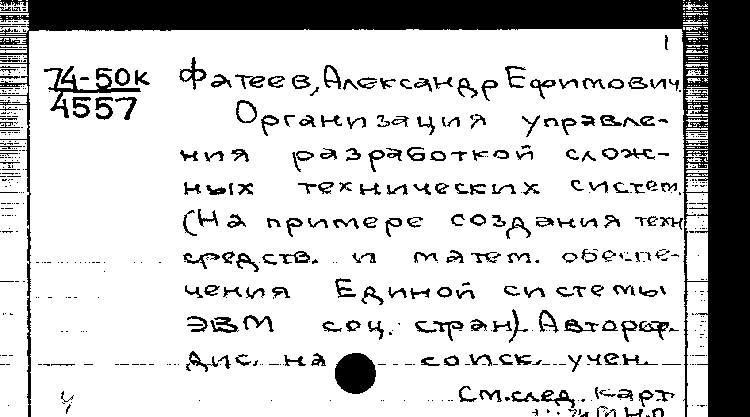 1
74-50к
4557
Фатеев, Александр Ефимович.
Организация управле-
ния разработкой слож-
ных технических систем.
(На примере создания техн
средств. и матем. обеспе-
чения Единой системы
ЭВМ соц. стран). Автореф.
дис. на соиск. учен.
См.след. карт